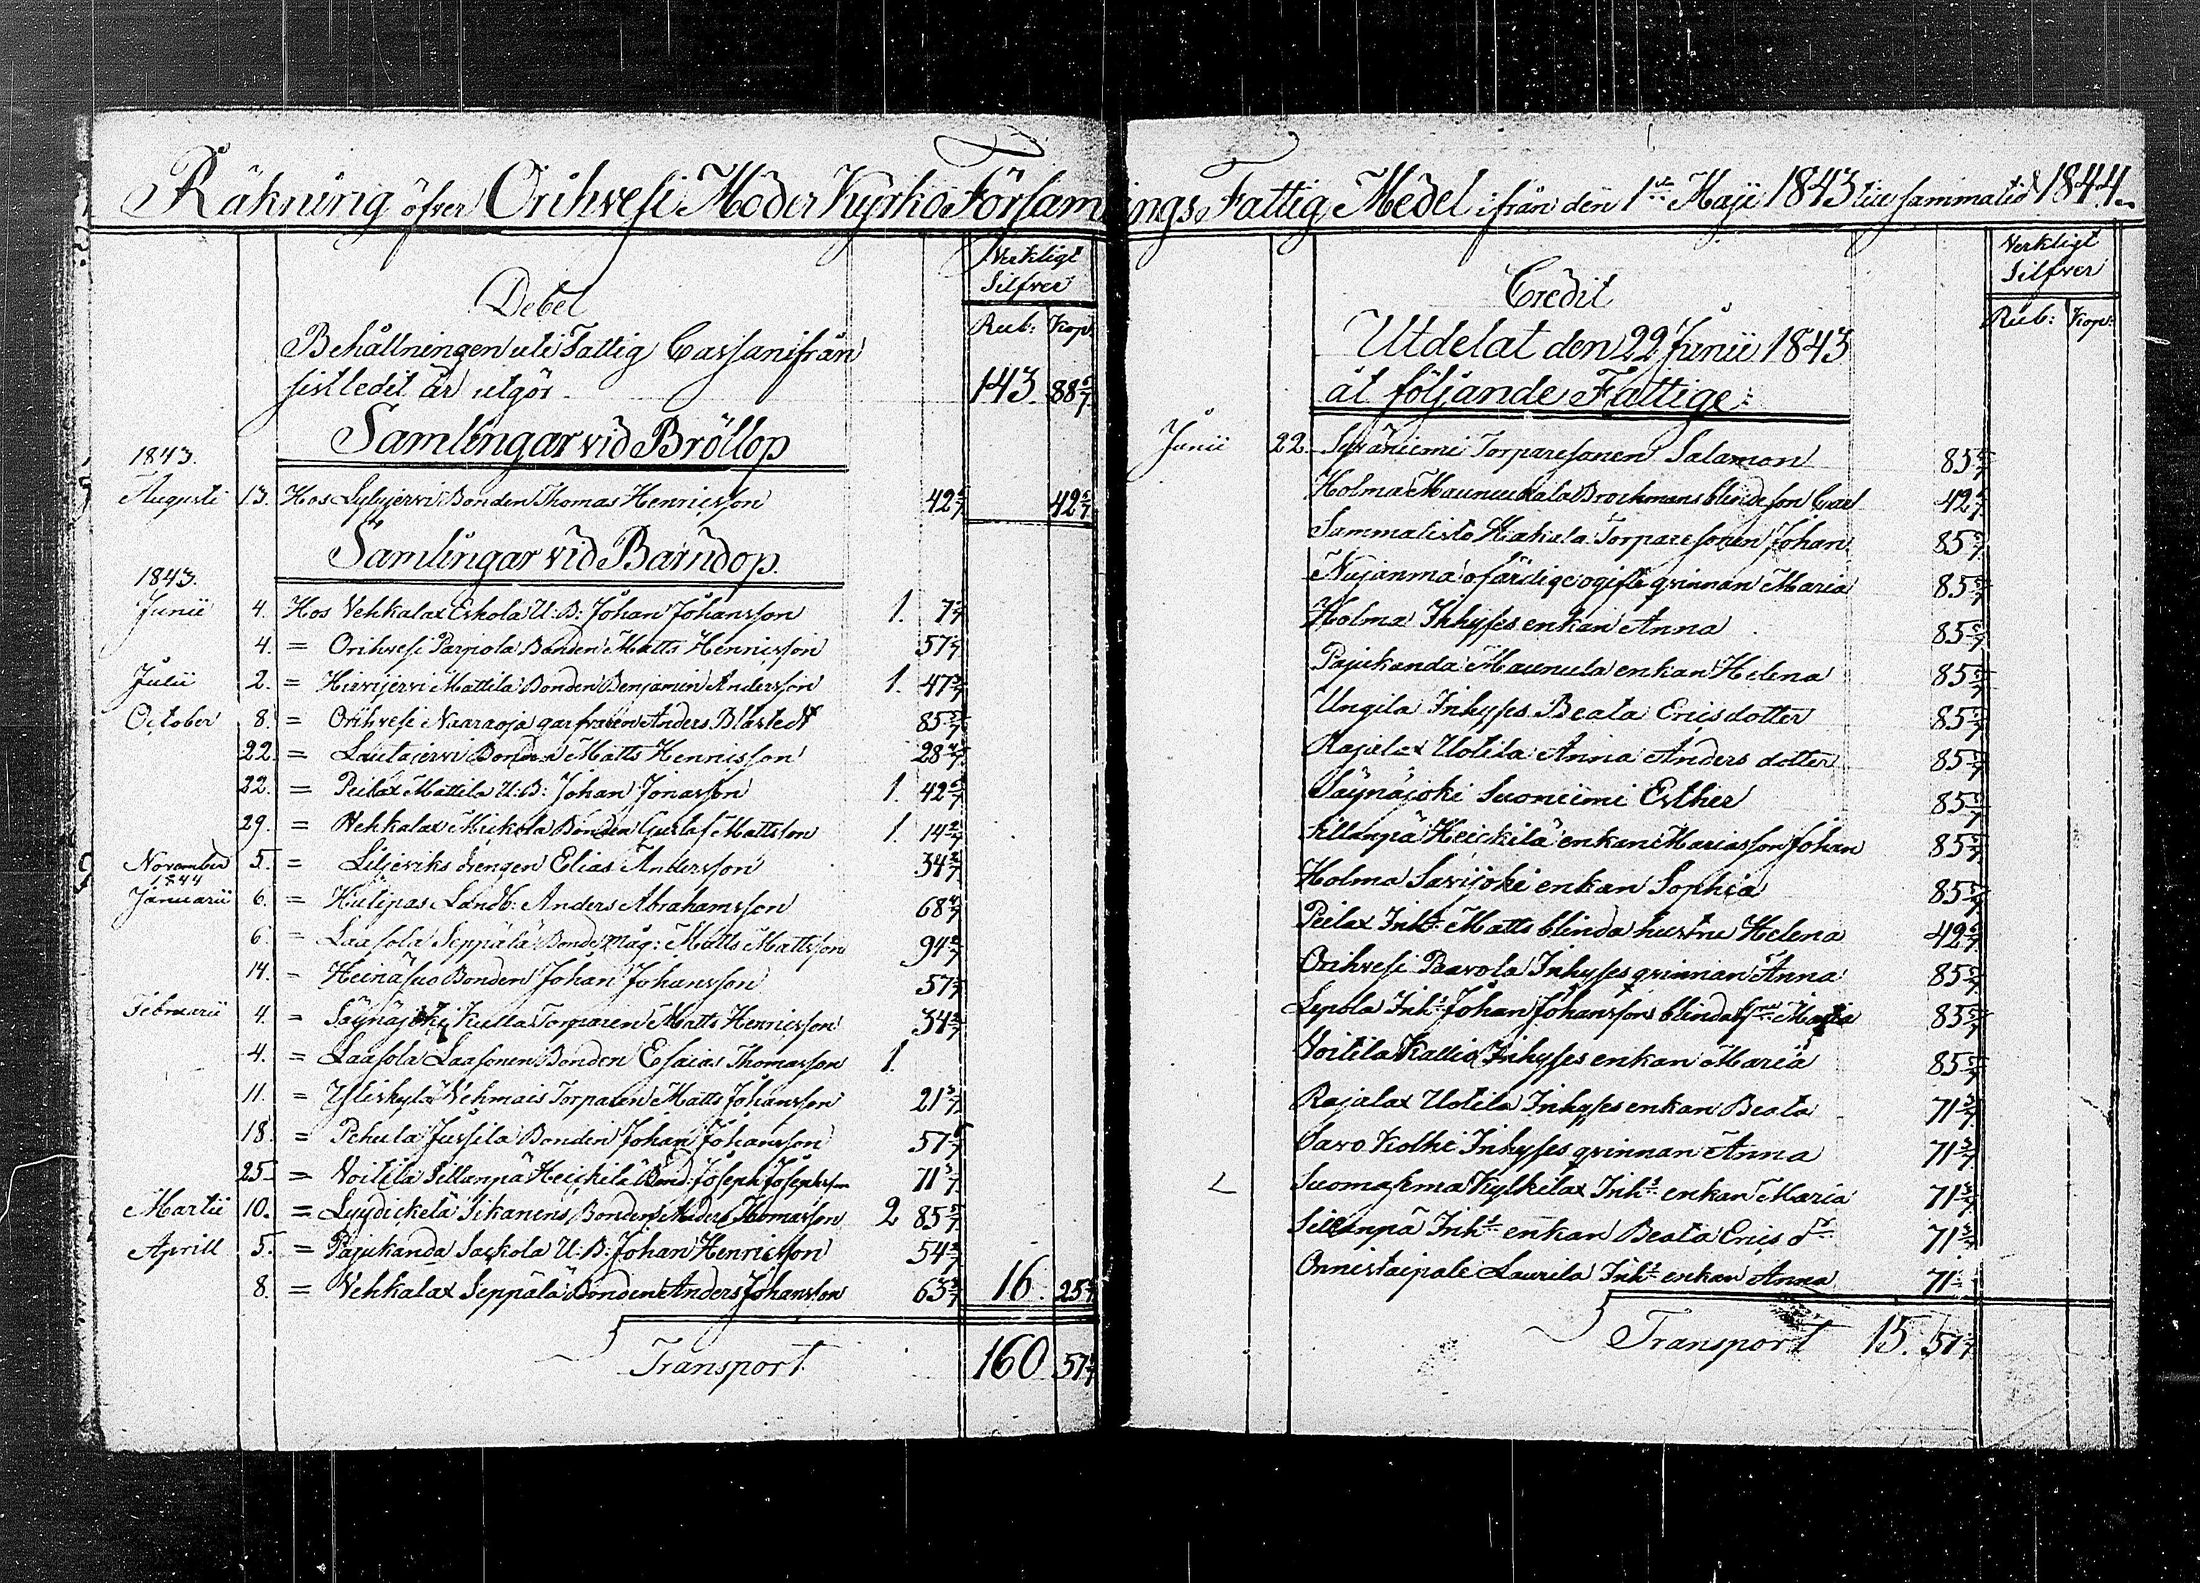 Räkning öfver Orihvesi Moder Kyrko Församlings Fattig Medel ifrån den 1sta Maji 1843 till samma tid 1844.
Debet
Verkligt
Silfver
Rub: Kop:
Behållningen uti Fattig Cassan ifrån
sistledit år utgör 143. 88 6/7
Samlingar vid Bröllop
1843.
Augusti 13. Hos Lyhyjervi Bonden Thomas Henricsson 42 6/7 42 6/7
Samlingar vid Barndop.
1843.
Junii 4. Hos Vehkalax Eskola U: B: Johan Johansson 1. 7 1/7
4. = Orihvesi Parjola Bonden Matts Henricsson 57 1/7
Julii 2. = Hirvijervi Mattila Bonden Benjamin Andersson 1. 47 3/7
October 8. = Orihvesi Naaraoja garfvaren Anders Blåstedt 85 5/7
22. = Lautajervi Bonden Matts Henricsson 28 4/7
22. = Peilax Mattila U: B: Johan Jonasson 1. 42 6/7
29. = Vehkalax Mickola Bonden Gustaf Mattsson 1. 14 2/7
November 5. = Liljeriks drengen Elias Andersson 34 2/7
1844
Januarii 6. = Hulipas Landb: Anders Abrahamsson 68 4/7
6. = Laasola Seppälä Bonde måg: Matts Mattsson 94 2/7
14. = Heinäsuo Bonden Johan Johansson 57 1/7
Februarii 4. = Säynäjoki Kulla Torparen Matts Henricsson 34 2/7
4. = Laasola Laasonen Bonden Esaias Thomasson 1.
11. = Yliskylä Vehmais Torparen Matts Johansson 21 3/7
18. = Pehula Jussila Bonden Johan Johansson 57 1/7
25. = Voitila Sillanpä Heickilä Bond: Joseph Josephsson 71 3/7
Martii 10. = Lyydickelä Sikanens Bonden Anders Thomasson 2 85 5/7
Aprill 5. = Pajukanda Sackola U: B: Johan Henricsson 54 2/7
8. = Vehkalax Seppälä Bonden Anders Johansson 63 3/7 16. 25 5/7
Transport 160 57 1/7
Credit
Verkligt
Silfver
Rub: Kop:
Utdelat den 22 Junii 1843
åt följande Fattige:
Junii 22. Syväniemi Torparesonen Salamon 85 5/7
Holma Maunuckala Brochmans blinde son Carl 42 6/7
Sammalisto Hakala Torparesonen Johan 85 5/7
ofärdige ogifte qvinnan Maria 85 5/7
Holma Inhyses enkan Anna 85 5/7
Pajukanda Maunula enkan Helena 85 5/7
Ungila Inhyses Beata Ericsdotter 85 5/7
Rajalax Uotila Anna Anders dotter 85 5/7
Säynäjoki Suoniemi Esther 85 5/7
Sillanpä Heickilä enkan Marias son Johan 85 5/7
Holma Savijoki enkan Sophia 85 5/7
Peilax Inh:s Matts blinda hustru Helena 42 6/7
Orihvesi Paavola Inhyses qvinnan Anna 85 5/7
Lepola Inh:s Johan Johanssons blinda Maria 85 5/7
Voitila Kallio Inhyses enkan Maria 85 5/7
Rajalax Uotila Inhyses enkan Beata 71 3/7
Savo Kolhi Inhyses qvinnan Anna 71 3/7
Suomasema Kylkilax Inh:s enkan Maria 71 3/7
Sillanpä Inh:s enkan Beata Erics dr 71 3/7
Onnistaipale Laurila Inh:s enkan Anna 71
Transport 15. 57 1/7